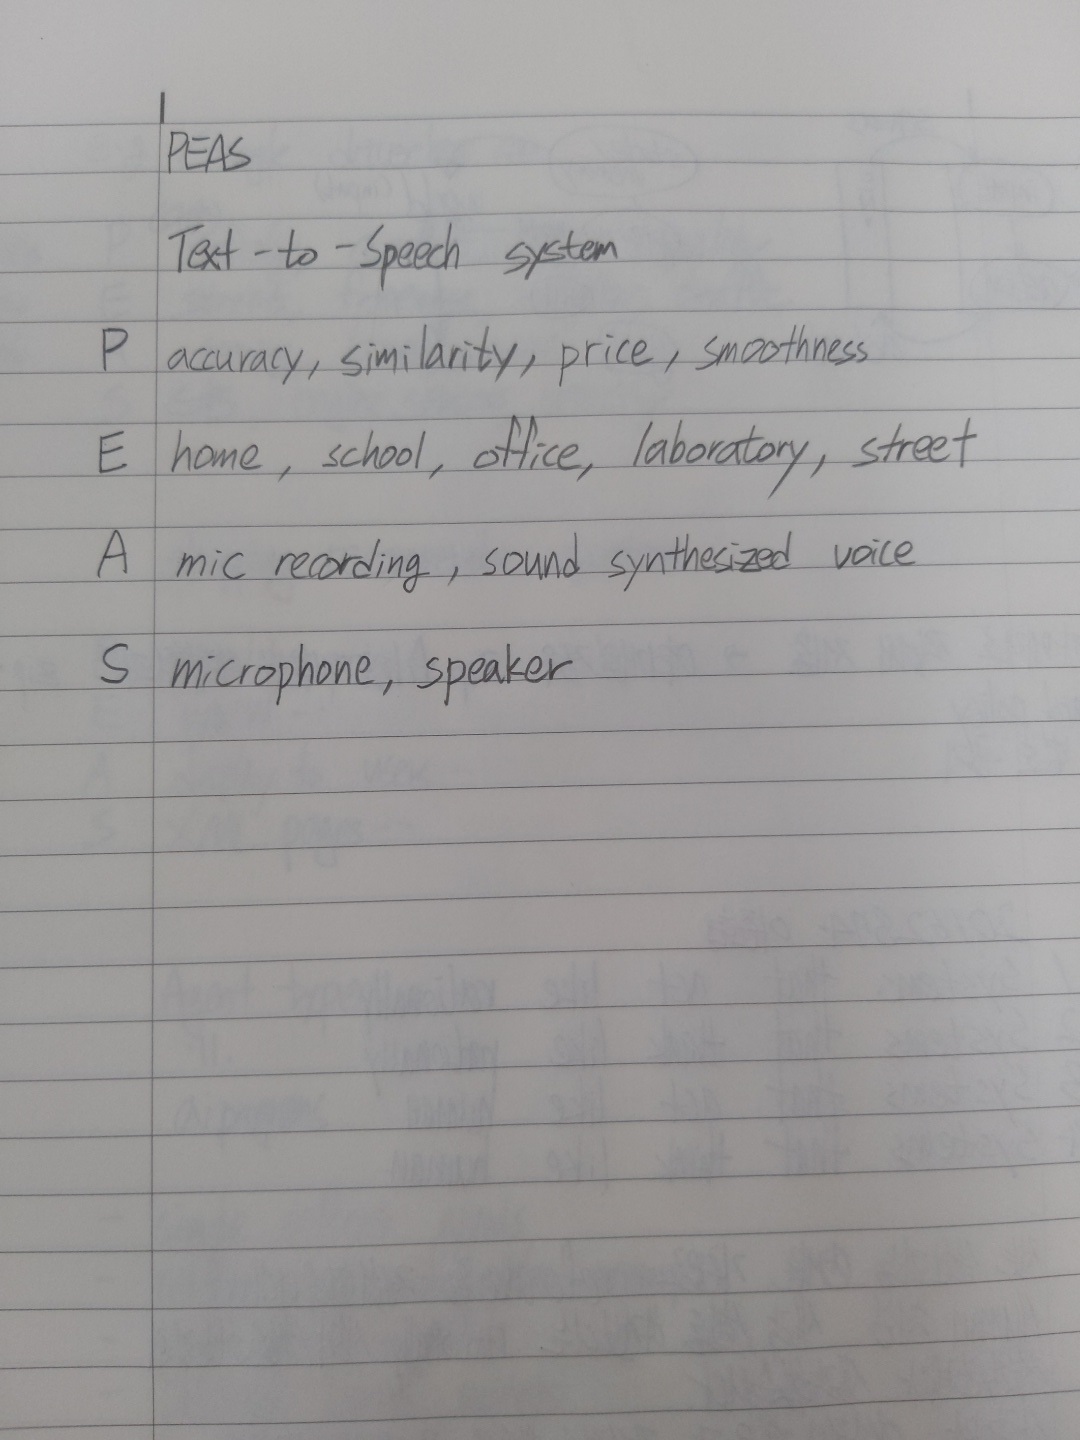 PEAS
Text-to-Speech system
P accuracy, similarity, price, smoothness
E home, school, office, laboratory, street
A mic recording, sound synthesized voice
S microphone, speaker